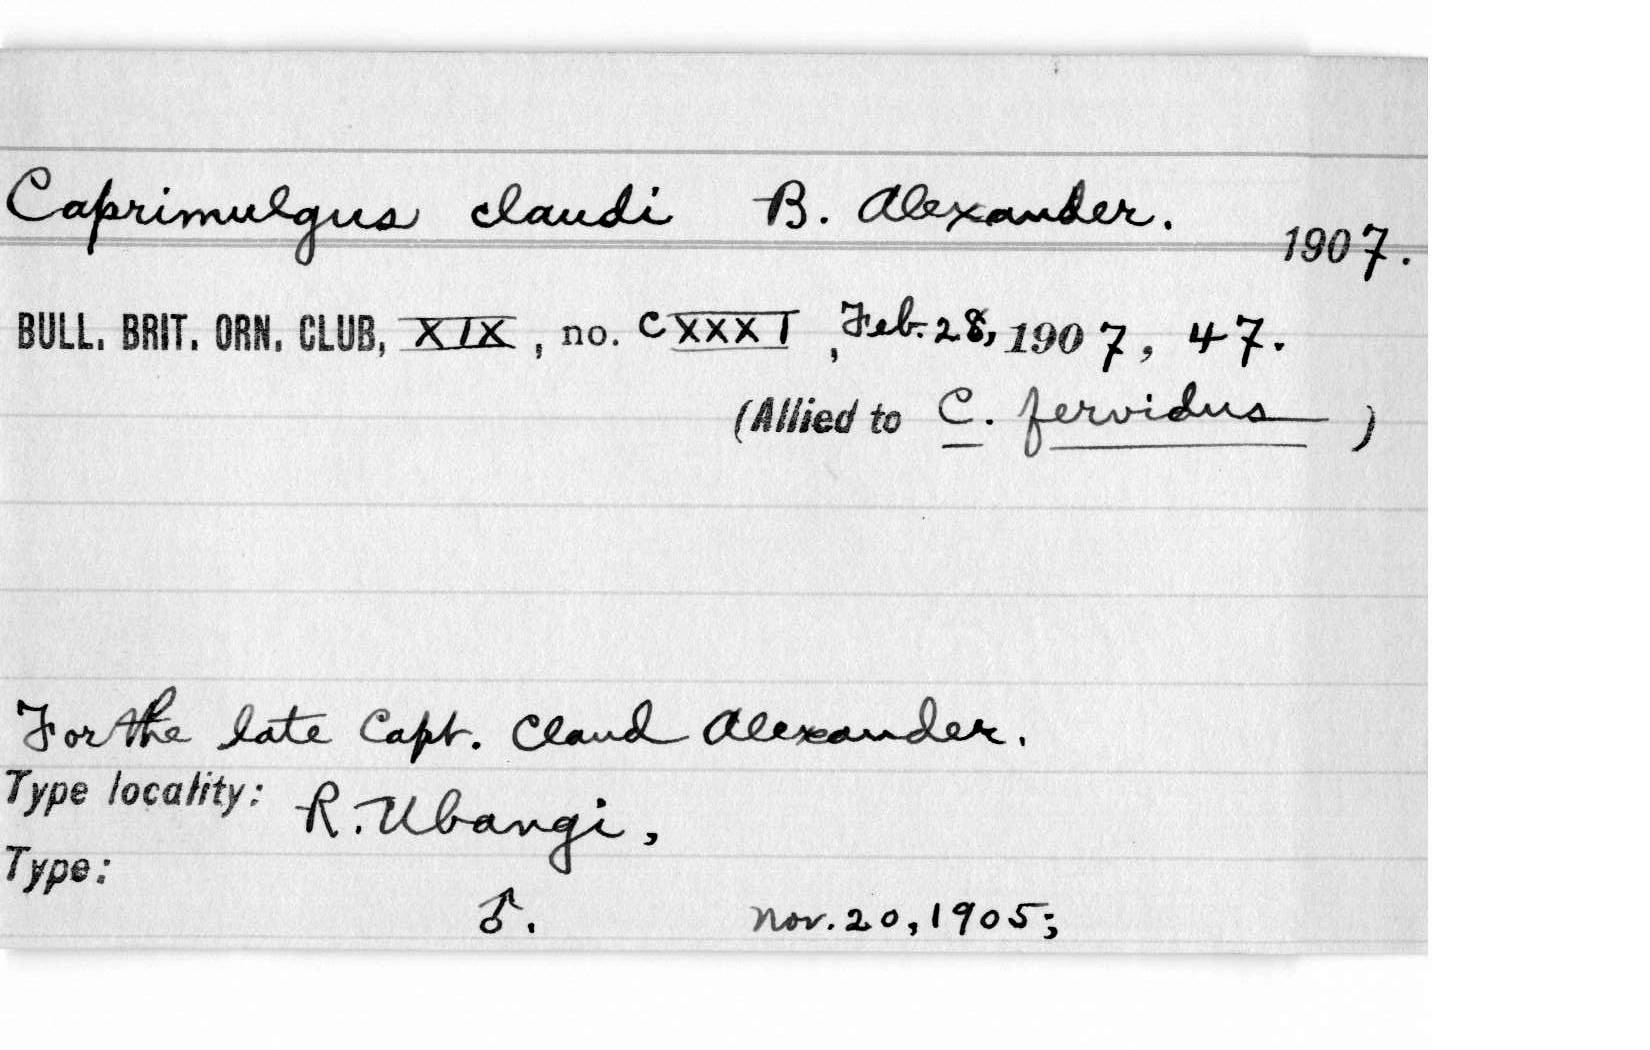 Caprimulgus claudi B. Alexander. 1907.
BULL. BRIT. ORN. CLUB, XIX, no. CXXXI, Feb. 28, 1907, 47.
(Allied to C. fervidus)
For the late Capt. Claud Alexander.
Type locality: R. Ubangi,
Type:
♂. Nov. 20, 1905;